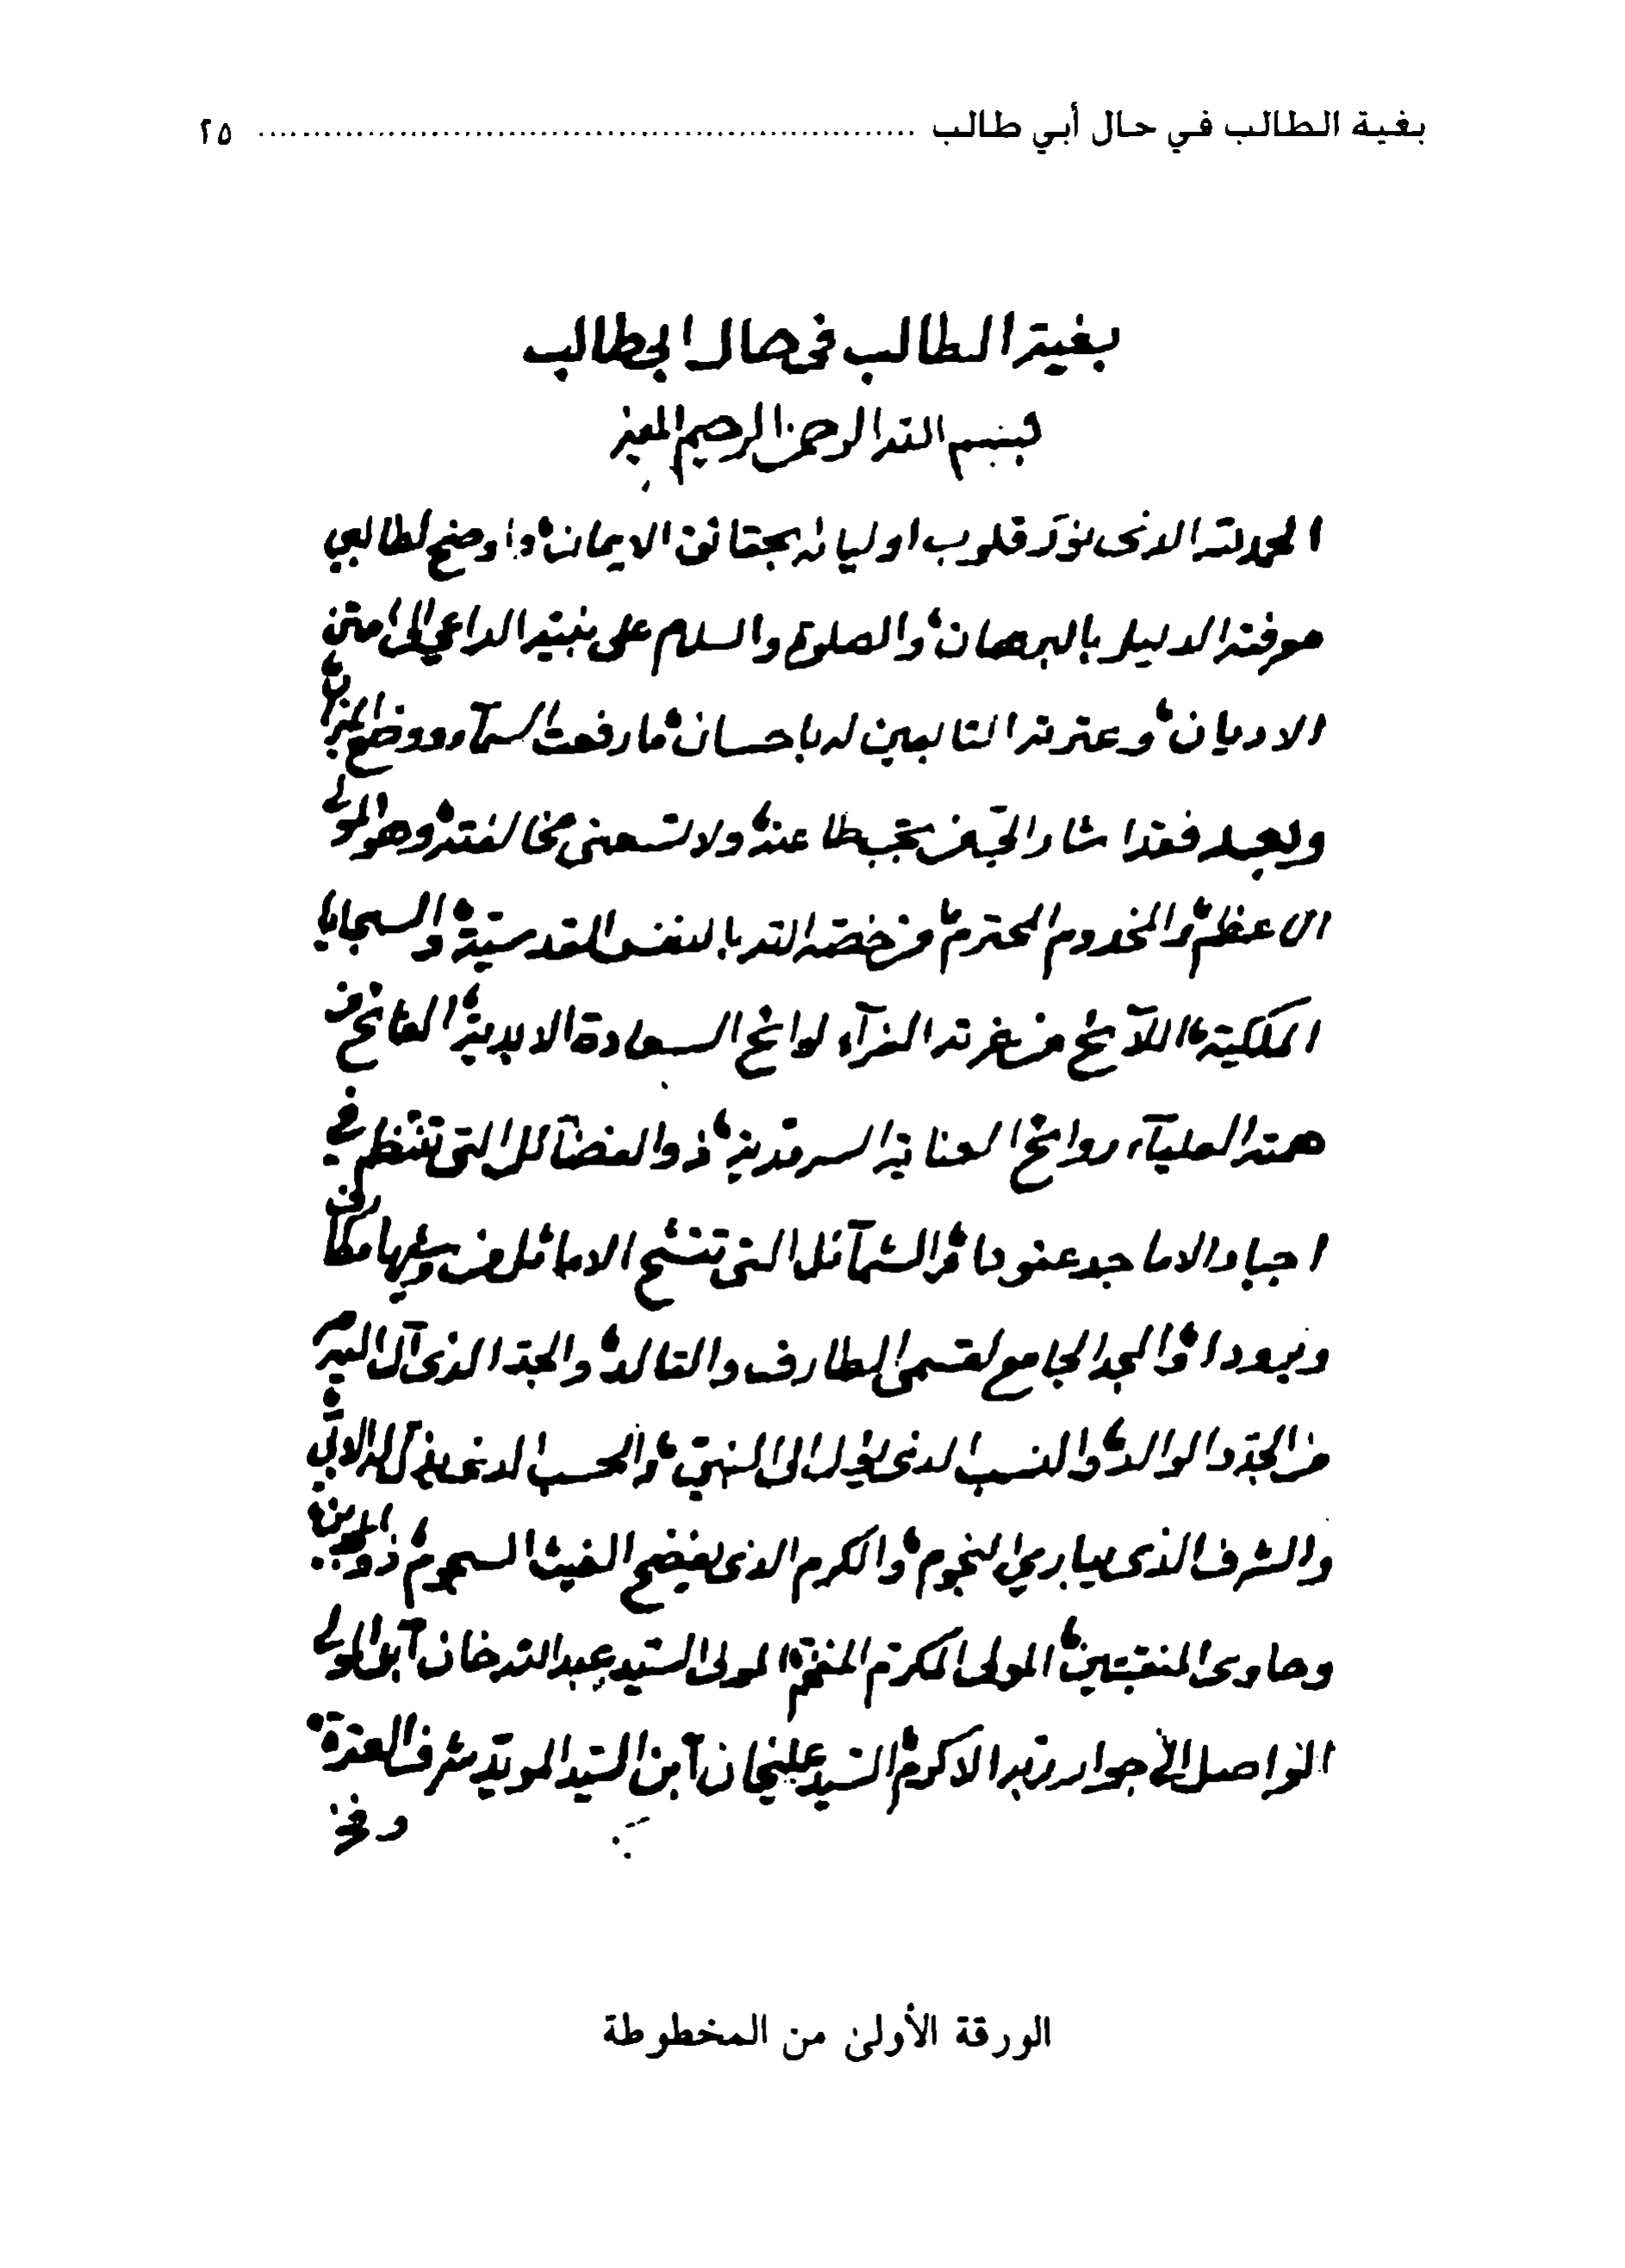 بغية الطالب في حال أبي طالب ........................ ٢٥
بغية الطالب في حال ابي طالب
بسم الله الرحمن الرحيم المعين
الحمد لله الذى نوّر قلوب اوليائه بحقائق الايمان، واوضح لطالبي
معرفته الدليل بالبرهان، والصلوة والسلام على نبيّه الداعي الى امتن
الاديان، وعترته التابعين له باحسان، ما رفعت السمآء ووضع الميزان،
وبعد فقد اشار الىّ من تجب طاعته، ولا تسعنى مخالفته، وهو المولى
الاعظم، والمخدوم المحترم، من خصّه الله بالنفس القدسيّة، والسجايا
الملكية، اللآئح من غرته الغرآء لوائح السعادة الابدية، الفائح من
همته العليآء روائح العناية السرمدية، ذو الفضآئل التى تنتظم في
اجياد الاماجد عقودا، والشمآئل التى تنسّج الاماثل من وشيها مطارف
وبرودا، والمجد الجامع لقسمى الطارف والتالد، والجدّ الذى آل اليه
من الجدّ والوالد، والنسب الذى يؤل الى النبيّ، والحسب الذى
والشرف الذى يبارى النجوم، والكرم الذى يفضح الغيث السجوم، ذو
وحاوى المنقبتين، المولى المكرّم المفخّم، المولى السيّد عبد الله خان آبن المولى
الواصل الى جوار ربّه الاكرم، السيد عليخان آبن السيّد المويّد شرف العترة،
وفخر
الورقة الأولى من المخطوطة